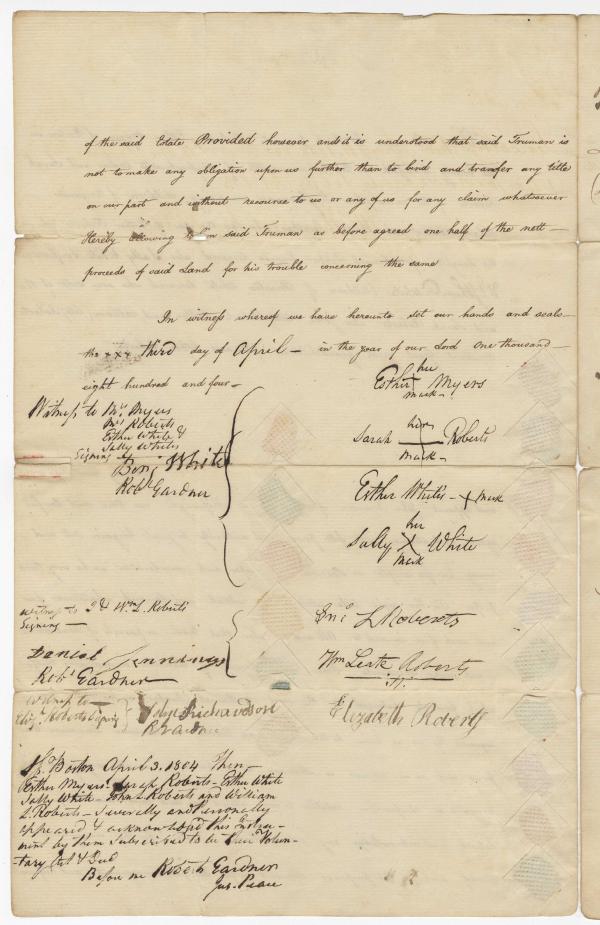 of the said Estate Provided however and it is understood that said Truman is
not to make any obligation upon us further than to bind and transfer any title
on our part and without recource to us or any of us for any claim whatsoever
Hereby allowing said Truman as before agreed one half of the nett —
proceeds of said Land for his trouble concerning the same
In witness whereof we have hereunto set our hands and seals —
the xxx third day of April — in the year of our Lord One thousand —
eight hundred and four —
Witness to Mrs Myers
Mrs Roberts
Esther White &
Sally White
Signing
Benj White
Robt Gardner
her
Esther Myers
mark
hers
Sarah Roberts
mark
Esther White's x mark
her
Sally X White
mark
witness to J & Wm L. Roberts
Signing —
Daniel Jennings
Robt Gardner
Jno L Roberts
Wm Leate Roberts
Witness to
Eliz. Roberts Signing
John Richardson
R Gardner
Elizabeth Roberts
Ss. Boston April 3. 1804 Then
Esther Myers Sarah Roberts Esther White
Sally White John L Roberts and William
L. Roberts Severally and Personally
appeared & acknowledged this Instru-
ment by them Subscribed to be their Volun-
tary Act & Deed
Before me Robert Gardner
Jus. Peace